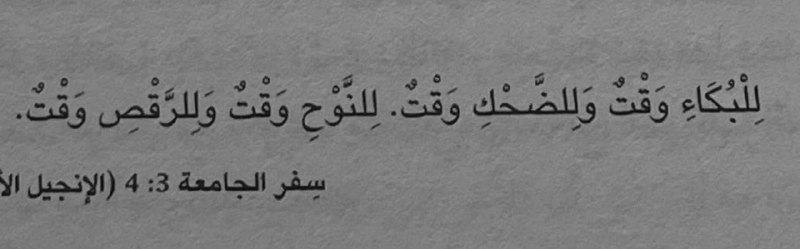 لِلْبُكَاءِ وَقْتٌ وَلِلضَّحْكِ وَقْتٌ. لِلنَّوْحِ وَقْتٌ وَلِلرَّقْصِ وَقْتٌ.
سِفر الجامعة 3: 4 (الإنجيل